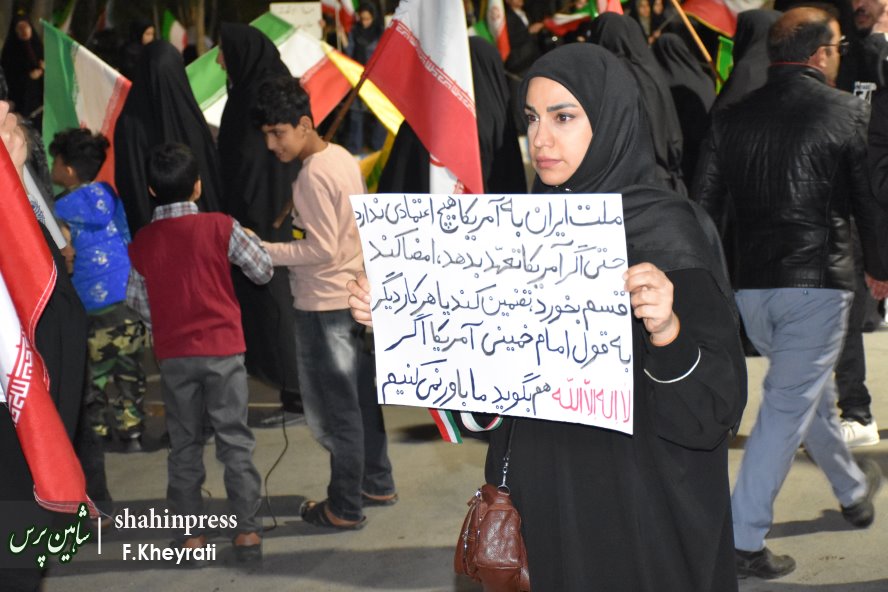 ملت ایران به آمریکا هیچ اعتمادی ندارد
حتی اگر آمریکا تعهد بدهد، امضا کند
قسم بخورد، تضمین کند یا هر کار دیگر
به قول امام خمینی آمریکا اگر
لا اله الا الله هم بگوید ما باور نمی‌کنیم
شاهین پرس
shahinpress
F.Kheyrati